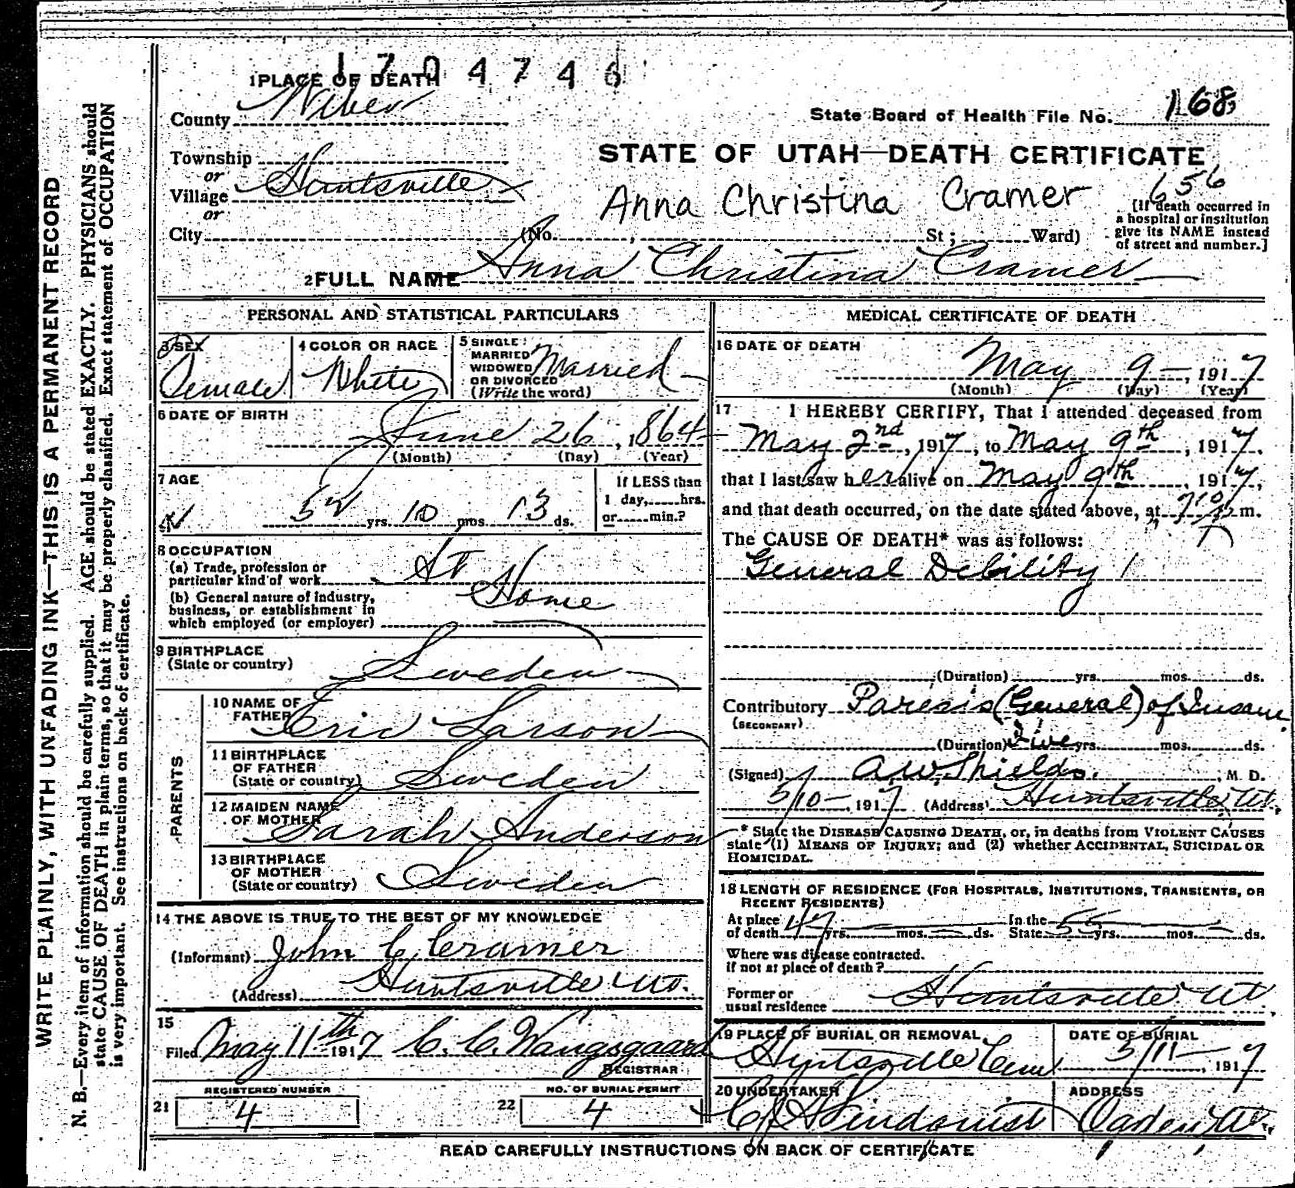 1704746
1 PLACE OF DEATH
County Weber
State Board of Health File No. 168
STATE OF UTAH—DEATH CERTIFICATE
Township
or
Village Huntsville
or
City (No. , St; Ward)
Anna Christina Cramer
656
[If death occurred in
a hospital or institution
give its NAME instead
of street and number.]
2 FULL NAME Anna Christina Cramer
PERSONAL AND STATISTICAL PARTICULARS
3 SEX Female
4 COLOR OR RACE White
5 SINGLE
MARRIED
WIDOWED
OR DIVORCED
(Write the word) Married
6 DATE OF BIRTH
June 26, 1864
(Month) (Day) (Year)
7 AGE
52 yrs. 10 mos. 13 ds.
If LESS than
1 day, hrs.
or min.?
8 OCCUPATION
(a) Trade, profession or
particular kind of work At
(b) General nature of industry,
business, or establishment in
which employed (or employer) Home
9 BIRTHPLACE
(State or country) Sweden
PARENTS
10 NAME OF
FATHER Eric Larson
11 BIRTHPLACE
OF FATHER
(State or country) Sweden
12 MAIDEN NAME
OF MOTHER Sarah Anderson
13 BIRTHPLACE
OF MOTHER
(State or country) Sweden
14 THE ABOVE IS TRUE TO THE BEST OF MY KNOWLEDGE
(Informant) John C Cramer
(Address) Huntsville Ut.
15
Filed May 11th 1917 C. C. Wangsgaard
REGISTRAR
REGISTERED NUMBER
21 4
NO. OF BURIAL PERMIT
22 4
MEDICAL CERTIFICATE OF DEATH
16 DATE OF DEATH
May 9, 1917
(Month) (Day) (Year)
17 I HEREBY CERTIFY, That I attended deceased from
May 2nd, 1917, to May 9th, 1917,
that I last saw her alive on May 9th, 1917,
and that death occurred, on the date stated above, at m.
The CAUSE OF DEATH* was as follows:
General Debility
(Duration) yrs. mos. ds.
Contributory Paresis (General) of Insane
(SECONDARY)
(Duration) Five yrs. mos. ds.
(Signed) A.W. Shields, M. D.
5/10, 1917 (Address) Huntsville, Ut.
* State the DISEASE CAUSING DEATH, or, in deaths from VIOLENT CAUSES
state (1) MEANS OF INJURY; and (2) whether ACCIDENTAL, SUICIDAL OR
HOMICIDAL.
18 LENGTH OF RESIDENCE (FOR HOSPITALS, INSTITUTIONS, TRANSIENTS, OR
RECENT RESIDENTS)
At place
of death 47 yrs. mos. ds.
In the
State 55 yrs. mos. ds.
Where was disease contracted.
if not at place of death?
Former or
usual residence Huntsville Ut.
19 PLACE OF BURIAL OR REMOVAL
Huntsville Cem
DATE OF BURIAL
5/11, 1917
20 UNDERTAKER
Lindquist
ADDRESS
Ogden, Ut.
READ CAREFULLY INSTRUCTIONS ON BACK OF CERTIFICATE
WRITE PLAINLY, WITH UNFADING INK—THIS IS A PERMANENT RECORD
N. B.—Every item of information should be carefully supplied. AGE should be stated EXACTLY. PHYSICIANS should
state CAUSE OF DEATH in plain terms, so that it may be properly classified. Exact statement of OCCUPATION
is very important. See instructions on back of certificate.